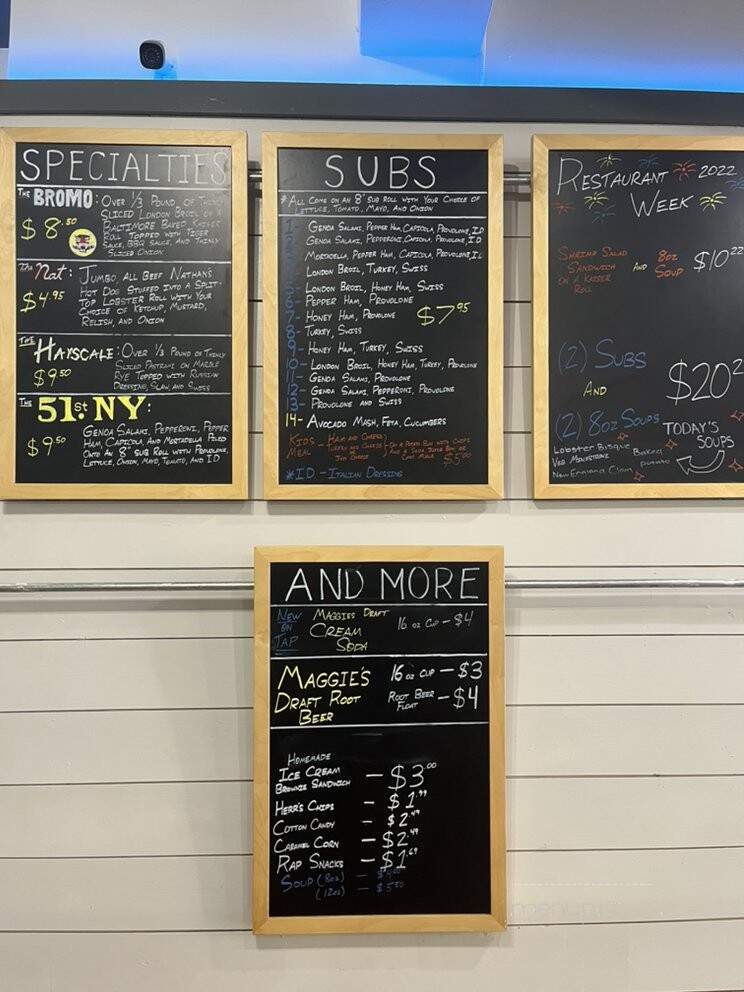 SPECIALTIES
THE BROMO: OVER 1/3 POUND OF THINLY
SLICED LONDON BROIL ON A
BALTIMORE BAKED KAISER
ROLL TOPPED WITH TIGER
SAUCE, BBQ SAUCE, AND THINLY
SLICED ONION
$8.50
THE Nat: JUMBO, ALL BEEF NATHAN'S
HOT DOG STUFFED INTO A SPLIT-
TOP LOBSTER ROLL WITH YOUR
CHOICE OF KETCHUP, MUSTARD,
RELISH, AND ONION
$4.95
THE HAYSCALE: OVER 1/3 POUND OF THINLY
SLICED PASTRAMI ON MARBLE
RYE TOPPED WITH RUSSIAN
DRESSING, SLAW, AND SWISS
$9.50
THE 51st. NY:
GENOA SALAMI, PEPPERONI, PEPPER
HAM, CAPICOLA, AND MORTADELLA PILED
ONTO AN 8" SUB ROLL WITH PROVOLONE,
LETTUCE, ONION, MAYO, TOMATO, AND ID
$9.50
SUBS
*ALL COME ON AN 8" SUB ROLL WITH YOUR CHOICE OF
LETTUCE, TOMATO, MAYO, AND ONION
1- GENOA SALAMI, PEPPER HAM, CAPICOLA, PROVOLONE, ID
GENOA SALAMI, PEPPERONI, CAPICOLA, PROVOLONE, ID
MORTADELLA, PEPPER HAM, CAPICOLA, PROVOLONE, ID
LONDON BROIL, TURKEY, SWISS
LONDON BROIL, HONEY HAM, SWISS
PEPPER HAM, PROVOLONE
7- HONEY HAM, PROVOLONE
8- TURKEY, SWISS
9- HONEY HAM, TURKEY, SWISS
10- LONDON BROIL, HONEY HAM, TURKEY, PROVOLONE
11- GENOA SALAMI, PROVOLONE
12- GENOA SALAMI, PEPPERONI, PROVOLONE
13- PROVOLONE AND SWISS
14- AVOCADO MASH, FETA, CUCUMBERS
$7.95
KIDS MEAL - HAM AND CHEESE
TURKEY AND CHEESE
JUST CHEESE
ON A POTATO BUN WITH CHIPS
AND A SODA, JUICE BOX, OR
$5.00
*ID - ITALIAN DRESSING
RESTAURANT 2022
WEEK
SHRIMP SALAD
SANDWICH AND 8oz
ON A KAISER SOUP
ROLL
$10.22
(2) SUBS
AND
(2) 8oz SOUPS
$20.2
TODAY'S
SOUPS
Lobster Bisque
Veg Minestrone
New England Clam
Baked
potato
AND MORE
NEW ON TAP
MAGGIES DRAFT
CREAM
SODA
16 oz CUP - $4
MAGGIE'S
DRAFT ROOT
BEER
16 oz CUP - $3
ROOT BEER
FLOAT - $4
HOMEMADE
ICE CREAM
BROWNIE SANDWICH - $3.00
HERR'S CHIPS - $1.99
COTTON CANDY - $2.49
CARAMEL CORN - $2.49
RAP SNACKS - $1.69
SOUP (8oz) -
(12oz) - $5.50